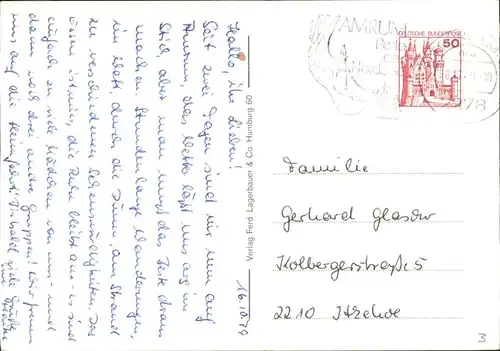 Hallo, ihr Lieben!
Seit zwei Tagen sind wir nun auf
Amrum, das Wetter läßt uns arg im
Stich, aber man muß das Beste draus
machen. Stundenlange Wanderungen,
im Watt, durch die Dünen, am Strand
zu verschiedenen Sehenswürdigkeiten. Das
einzige, die Ruhe bleibt aus - es sind
so viele Mädchen von uns - und
dann noch drei andre Gruppen! Wir freuen
uns auf die Heimfahrt! Bis bald viele Grüße
16.10.79
Verlag Ferd. Lagerbauer & Co. Hamburg 60
AMRUM
DEUTSCHE BUNDESPOST
50
2278
Familie
Gerhard Glasow
Kolbergerstraße 5
2210 Itzehoe
3